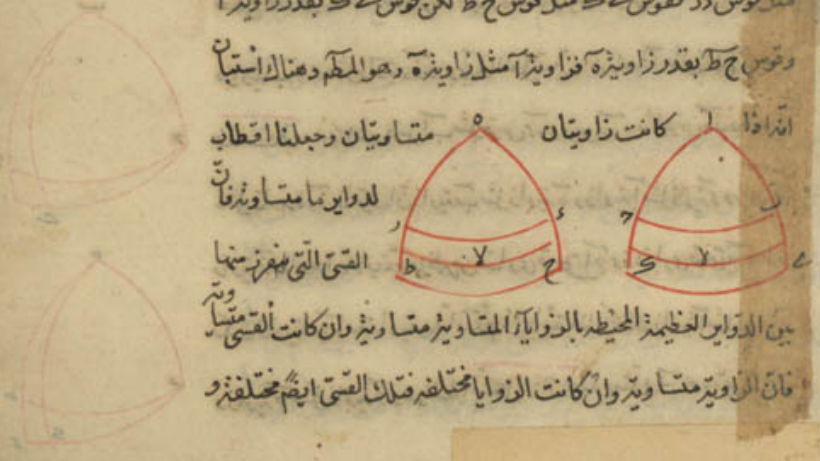 وقوس ح ط بقدر زاوية ه فزاوية آ مثل زاوية ه وهو المط وهناك استبان
انه اذا كانت زاويتان متساويتان وجعلنا اقطاب
لدواير ما متساوية فان
القسى التى ينفرز منها
بين الدواير العظيمة المحيطه بالزوايا المتساوية متساوية وان كانت القسى متساوية
فان الزاوية متساوية وان كانت الزوايا مختلفه فتلك القسى ايضً مختلفة و
ا
ه
ر
ء
ط
ح
لا
ك
لا